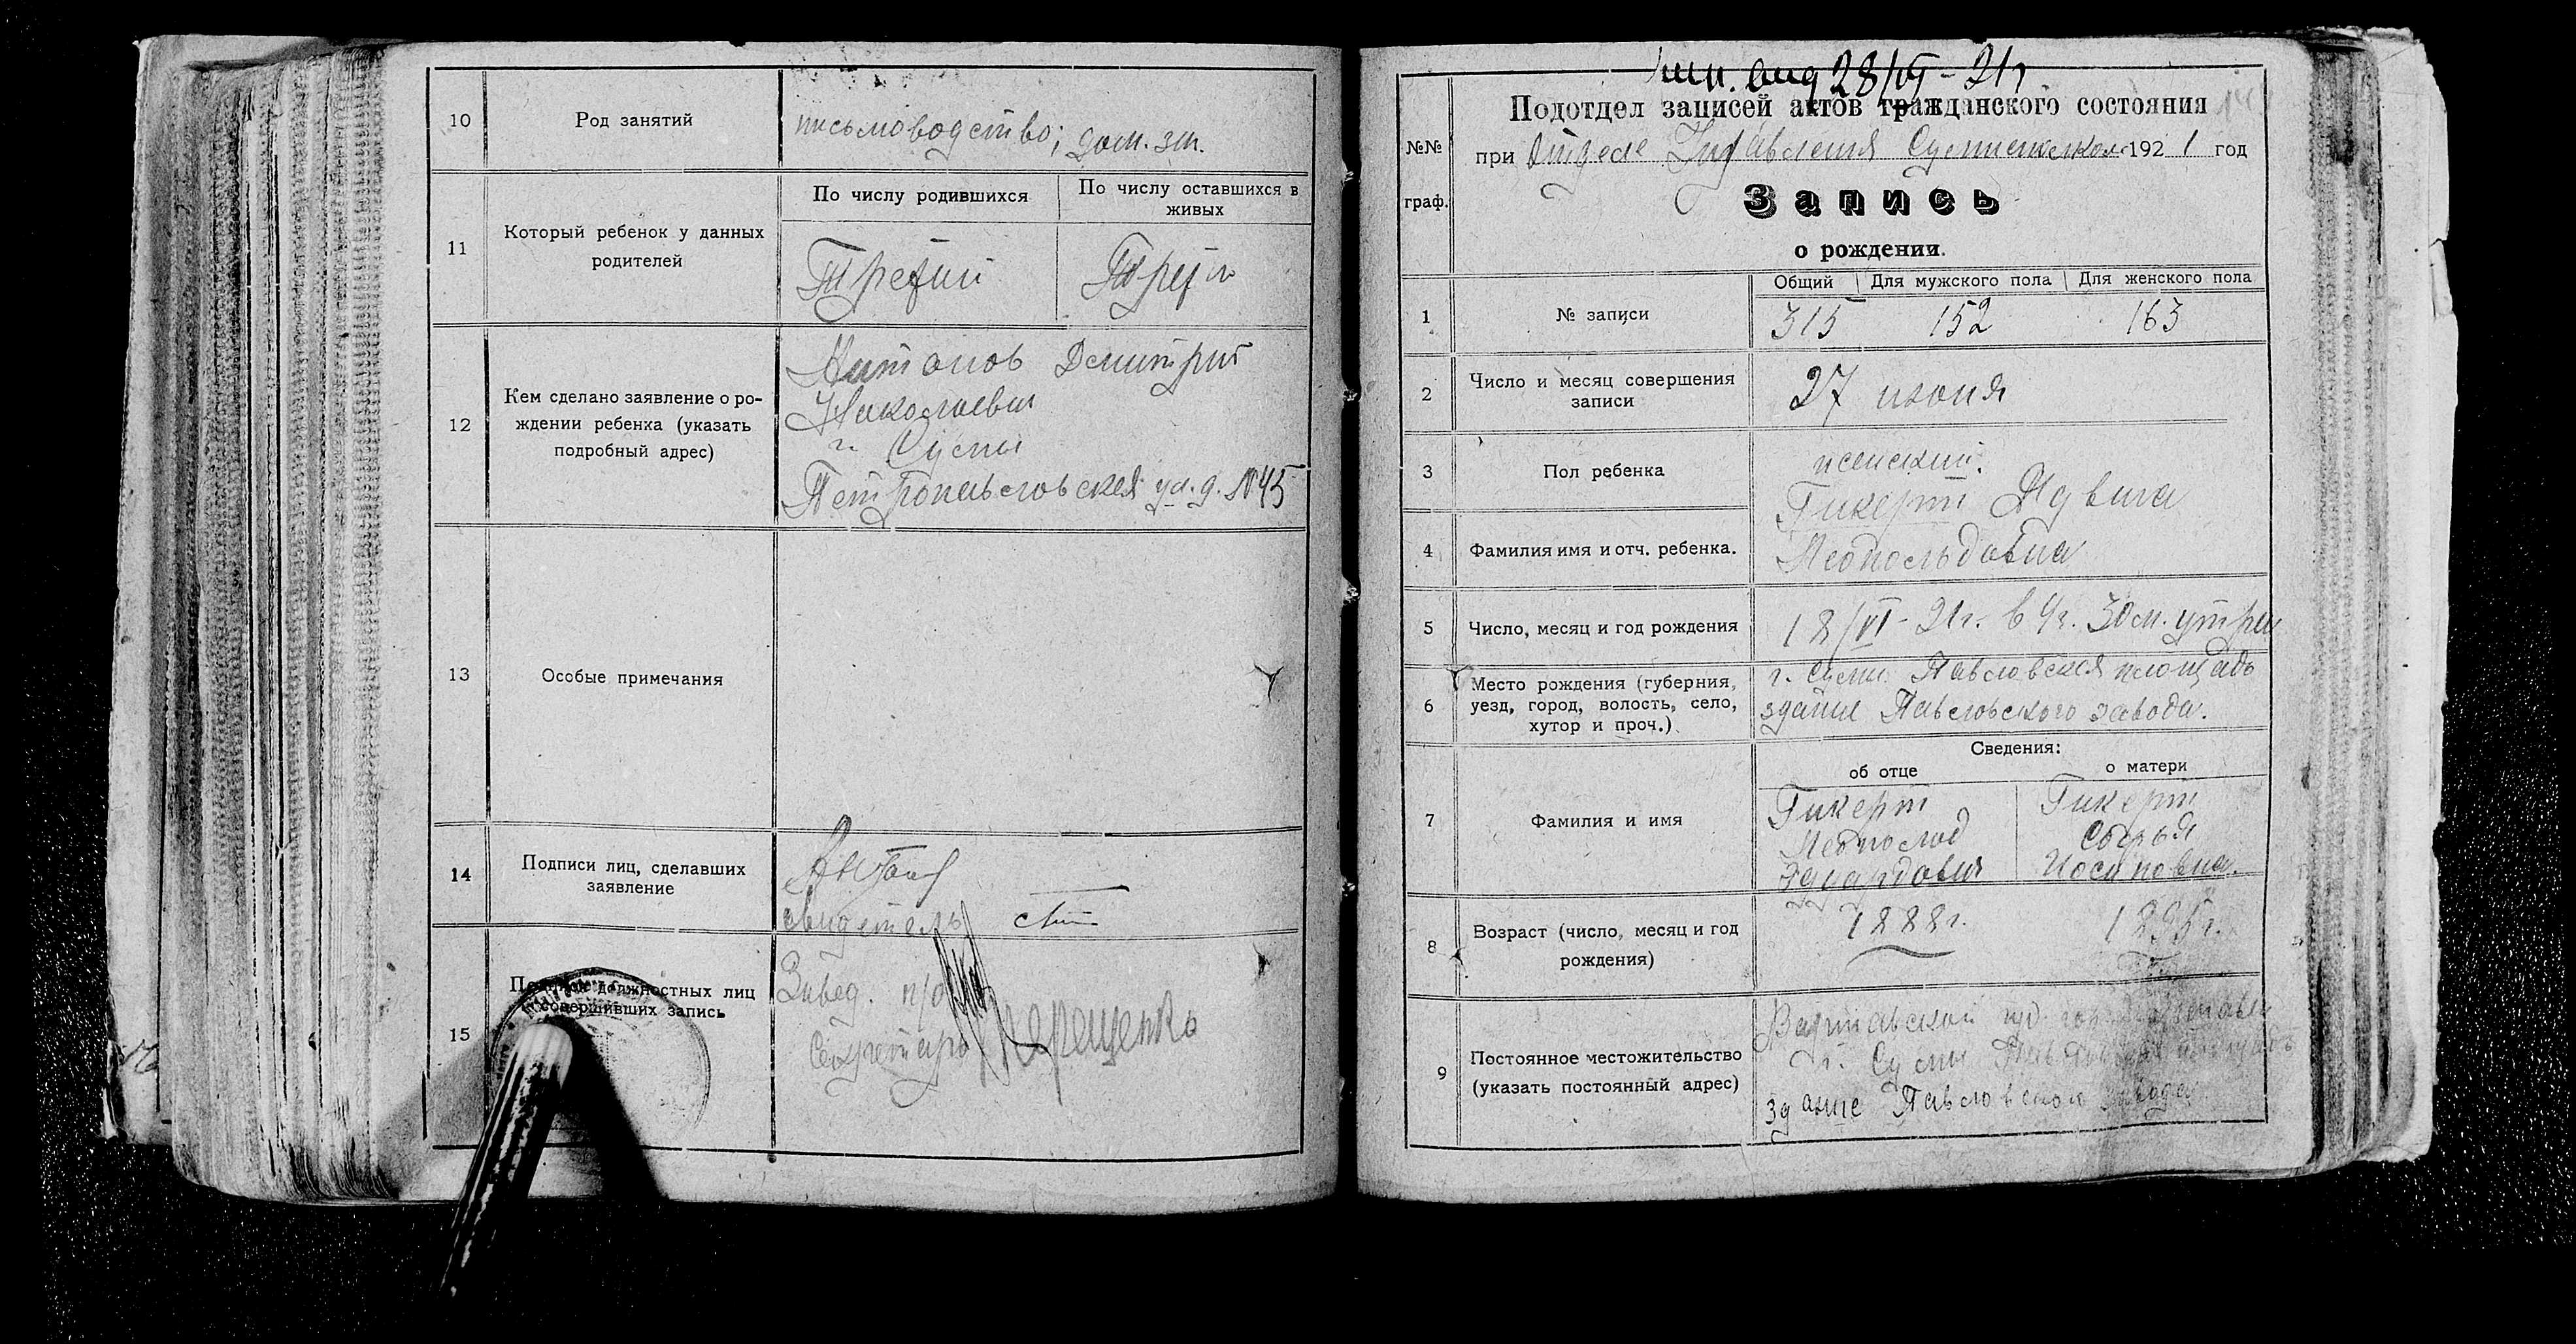 10
Род занятий
письмоводство; дом. зн.
11
Который ребенок у данных
родителей
По числу родившихся
По числу оставшихся в
живых
Третий
12
Кем сделано заявление о ро-
ждении ребенха (указать
подробный адрес)
Антонов Дмитрий
Николаевич
г. Сумы
Петропавловская ул. д. №45
13
Особые примечания
14
Подписи лиц, сделавших
заявление
свидетель
15
должностных лиц
совершивших запись
Завед. п/о
Секретарь Терещенко
28/VI - 21г
Подотдел записей актов гражданского состояния
№№
граф.
при Отделе Управления Сумском 1921 год
Запись
о рождении.
Общий
Для мужского пола
Для женского пола
1
№ записи
315
152
163
2
Число и месяц совершения
записи
27 июня
3
Пол ребенка
женский.
4
Фамилия имя и отч. ребенка.
Гикерт Ядвига
Леопольдовна
5
Число, месяц и год рождения
18/VI - 21г. в 4ч. 30м. утра
6
Место рождения (губерния,
уезд, город, волость, село,
хутор и проч.)
г. Сумы Павловская площадь
здание Павловского завода.
Сведения:
об отце
о матери
7
Фамилия и имя
Гикерт
Эдуардович
Гикерт
Иосиповна.
8
Возраст (число, месяц и год
рождения)
1888г.
1895г.
9
Постоянное местожительство
(указать постоянный адрес)
Варшавской гуд. гор. Варшавы
г. Сумы Павловская площадь
здание Павловского завода